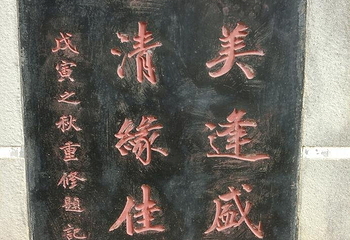 美達盛
清緣佳
戊寅之秋重修題記